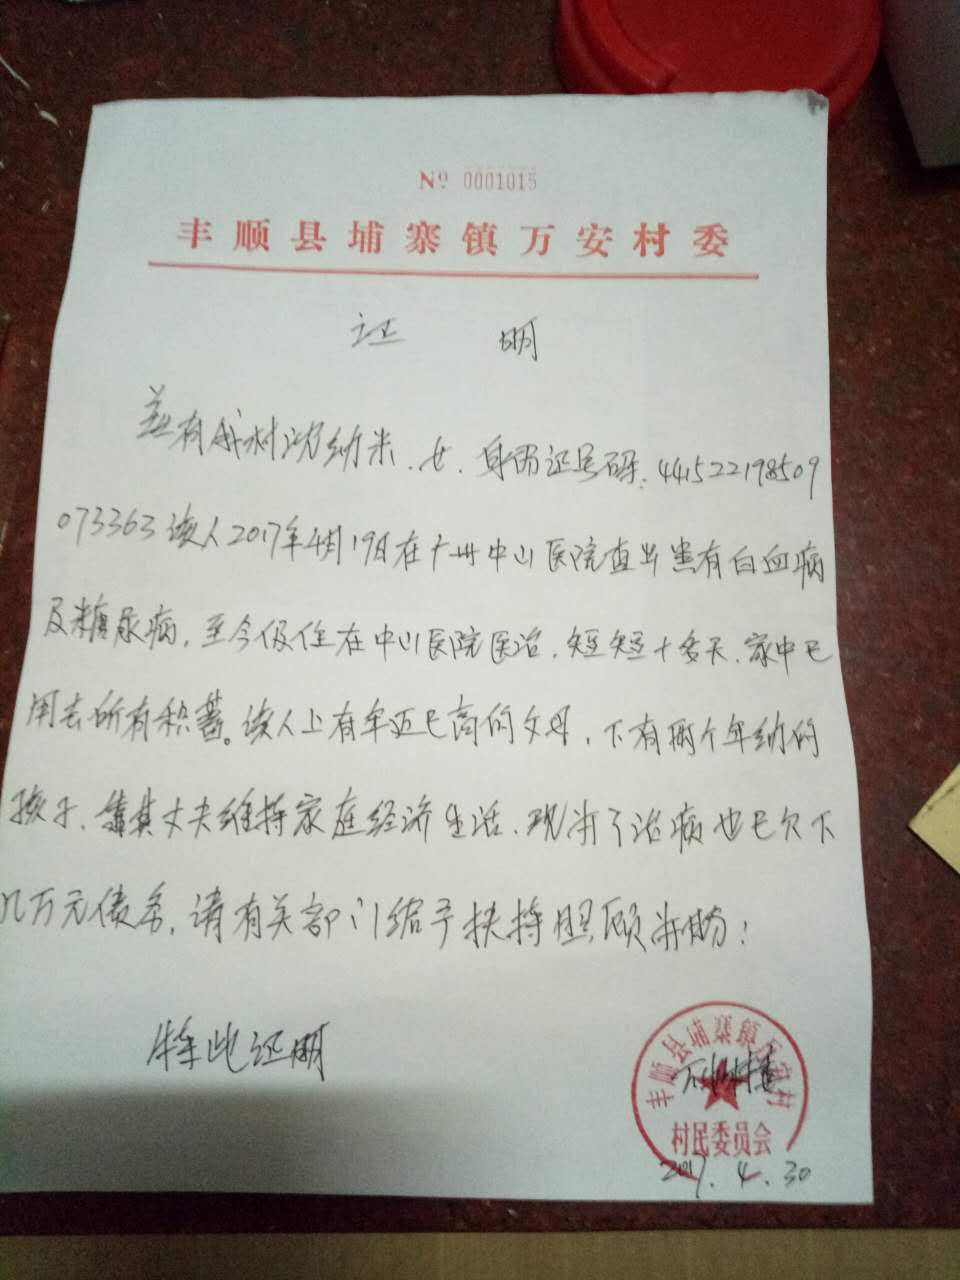 № 0001015
丰顺县埔寨镇万安村委
证 明
兹有我村沈纳米、女、身份证号码:441522198509
073363该人2017年4月19日在广州中山医院查出患有白血病
及糖尿病,至今仍住在中山医院医治,短短十多天,家中已
用去所有积蓄。该人上有年迈已高的父母,下有两个年幼的
孩子、靠其丈夫维持家庭经济生活,现为了治病也已欠下
几万元债务,请有关部门给予扶持照顾为盼!
特此证明
丰顺县埔寨镇万安村
村民委员会
2017.4.30